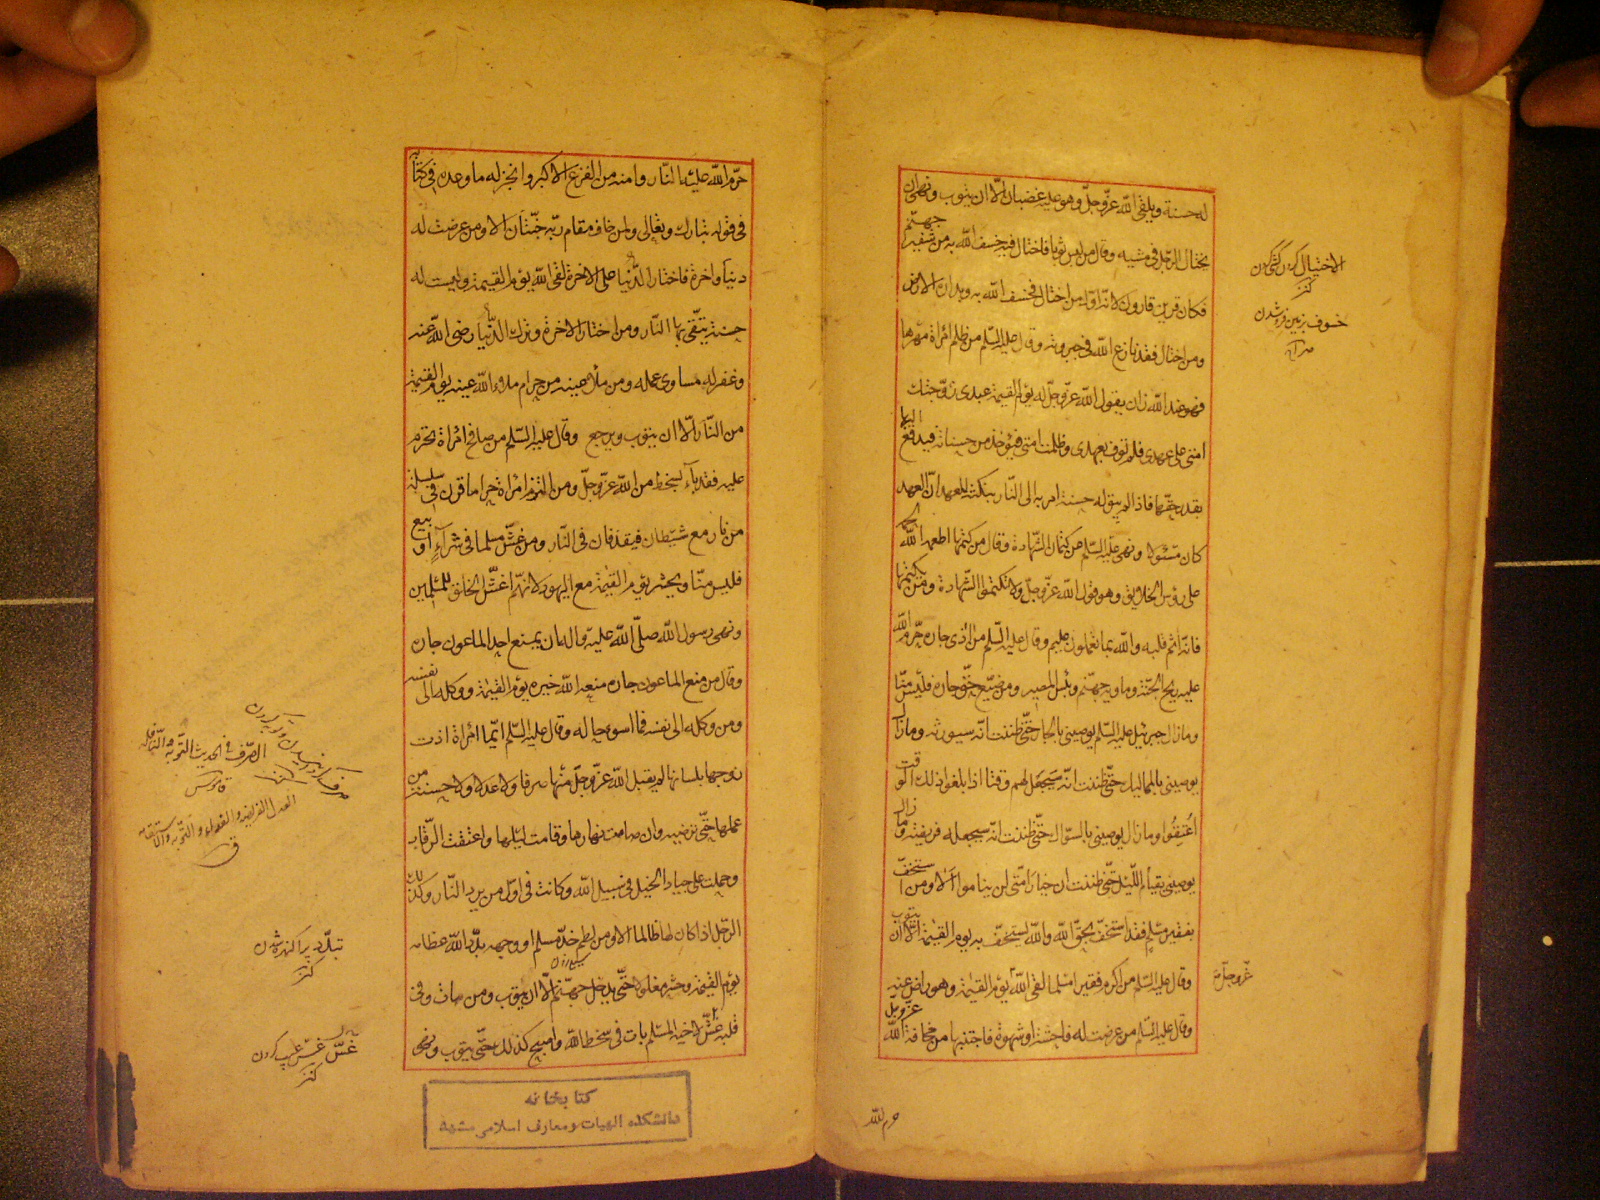 له حسنة ويلقى الله عزّ وجلّ وهو عليه غضبان الّا ان يتوب ونهى ان
يختال الرّجل فى مشيه وقال من لبس ثوبا فاختال فيه خسف الله به من شفير جهنّم
فكان قرين قارون لانّه اوّل من اختال فخسف الله به وبداره الارض
ومن اختال فقد نازع الله فى جبروته وقال عليه السّلم من ظلم امرأة مهرها
فهو عند الله زان يقول الله عزّ وجلّ له يوم القيمة عبدى زوّجتك
امتى على عهدى فلم توف بعهدى وظلمت امتى فيؤخذ من حسناته فيدفع اليها
بقدر حقّها فاذا لم يبق له حسنة امر به الى النّار بنكثه للعهد انّ العهد
كان مسئولا ونهى عليه السّلم عن كتمان الشّهادة وقال من كتمها اطعمه الله لحمه
على رؤس الخلايق وهو قول الله عزّ وجلّ ولا تكتموا الشّهادة ومن يكتمها
فانّه اثم قلبه والله بما تعملون عليم وقال عليه السّلم من اذى جاره حرّم الله
عليه ريح الجنّة وماويه جهنّم وبئس المصير ومن ضيّع حقّ جاره فليس منّا
وما زال جبرئيل عليه السّلم يوصينى بالجار حتّى ظننت انّه سيورثه وما زال
يوصينى بالمماليك حتّى ظننت انّه سيجعل لهم وقتا اذا بلغوا ذلك الوقت
اعتقوا وما زال يوصينى بالسّواك حتّى ظننت انّه سيجعله فريضة وما زال
يوصينى بقيام اللّيل حتّى ظننت ان خيار امّتى لن يناموا الا ومن استخفّ
بفقير مسلم فقد استخفّ بحقّ الله والله يستخفّ به يوم القيمة الّا ان يتوب
وقال عليه السّلم من اكرم فقيرا مسلما لقى الله يوم القيمة وهو راض عنه
وقال عليه السّلم من عرضت له فاحشة او شهوة فاجتنبها من مخافة الله عزّ وجلّ
الاختيال كردن كشى كردن
كنز
خسوف بزمين فرو شدن
عزّ وجلّ
حرم الله
حرّم الله عليه النّار وامنه من الفزع الاكبر وانجز له ما وعده فى كتابه
فى قوله تبارك وتعالى ولمن خاف مقام ربّه جنّتان الا ومن عرضت له
دنيا واخرة فاختار الدّنيا على الاخرة لقى الله يوم القيمة وليست له
حسنة يتّقى بها النّار ومن اختار الاخرة وترك الدّنيا رضى الله عنه
وغفر له مساوى عمله ومن ملأ عينه من حرام ملاء الله عينه يوم القيمة
من النّار الّا ان يتوب ويرجع وقال عليه السّلم من صافح امرأة تحرم
عليه فقد باء بسخط من الله عزّ وجلّ ومن التزم امرأة حراما قرن فى سلسلة
من نار مع شيطان فيقذفان فى النّار ومن غشّ مسلما فى شراء او بيع
فليس منّا ويحشر يوم القيمة مع اليهود لانّهم اغشّ الخلق للمسلمين
ونهى رسول الله صلّى الله عليه واله ان يمنع احد الماعون جاره
وقال من منع الماعون جاره منعه الله خيره يوم القيمة ووكله الى نفسه
ومن وكله الى نفسه فما اسوء حاله وقال عليه السّلم ايّما امرأة اذت
زوجها بلسانها لم يقبل الله عزّ وجلّ منها صرفا ولا عدلا ولا حسنة من
عملها حتّى ترضيه وان صامت نهارها وقامت ليلها واعتقت الرّقاب
وحملت على جياد الخيل فى سبيل الله وكانت فى اوّل من يرد النّار وكذلك
الرّجل اذا كان لها ظالما الا ومن لطم خدّ مسلم او وجهه بدّد الله عظامه
يوم القيمة وحشر مغلولا حتّى يدخل جهنّم الّا ان يتوب ومن بات وفى
قلبه غشّ لاخيه المسلم بات فى سخط الله واصبح كذلك حتّى يتوب ونهى
الصّرف فى الحديث التّوبة والنّافلة
قاموس
العدل الفريضة
ق
كنز
كنز
كتابخانه
دانشكده الهيات ومعارف اسلامى مشهد